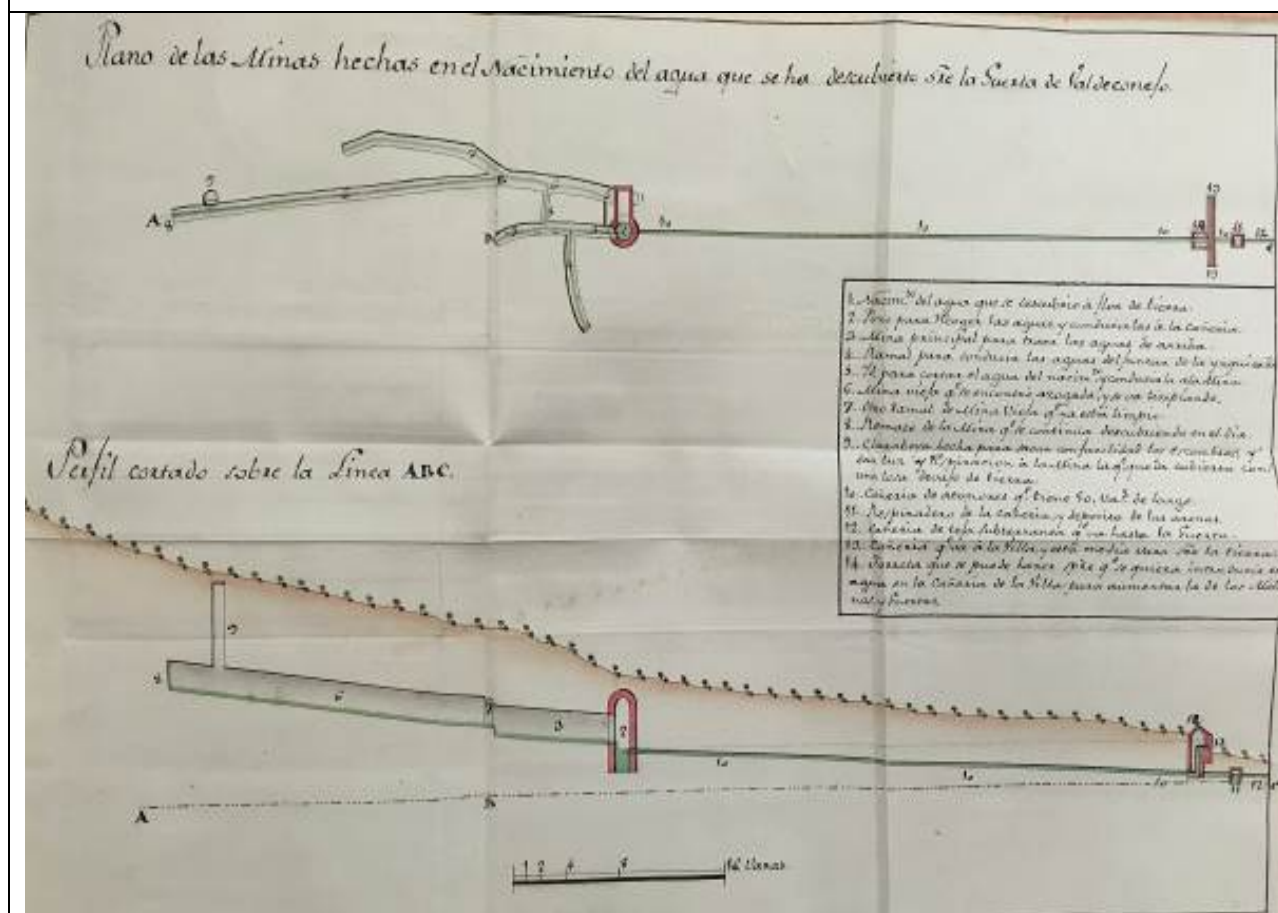 Plano de las Minas hechas en el Nacimiento del agua que se ha descubierto sre la Fuente de Valdeconejo.
A
Perfil cortado sobre la Linea ABC.
1. Nacim.to del agua que se descubrio à flor de tierra.
2. para Recoger las aguas y conducirlas à la cañeria.
3. Mina principal para traer las aguas de arriba.
4. Ramal para conducir las aguas del de la
5. para cortar el agua del nacim.to y conducirla ala Mina.
6. Mina vieja q.e se encontro y se va
7. Otro Ramal de Mina Vieja q.e ya està limpio.
8. Remate de la Mina q.e se continua descubriendo en el dia.
9. hecha para sacar con facilidad los escombros, y
dar luz y Respiracion à la Mina la q.e queda cubierta con
una losa devajo de tierra.
10. Cañeria de q.e tiene 50. va.s de largo.
11. Respiradero de la cañeria y deposito de las arenas.
12. Cañeria de teja subterranea q.e va hasta la Fuente.
13. Cañeria q.e va à la Villa y està media vara sre la tierra.
14. que se puede hacer q.e se quiera introducir el
agua en la Cañeria de la Villa para aumentar la de los
y Fuentes
A
B
1 2 4 8 16 Varas